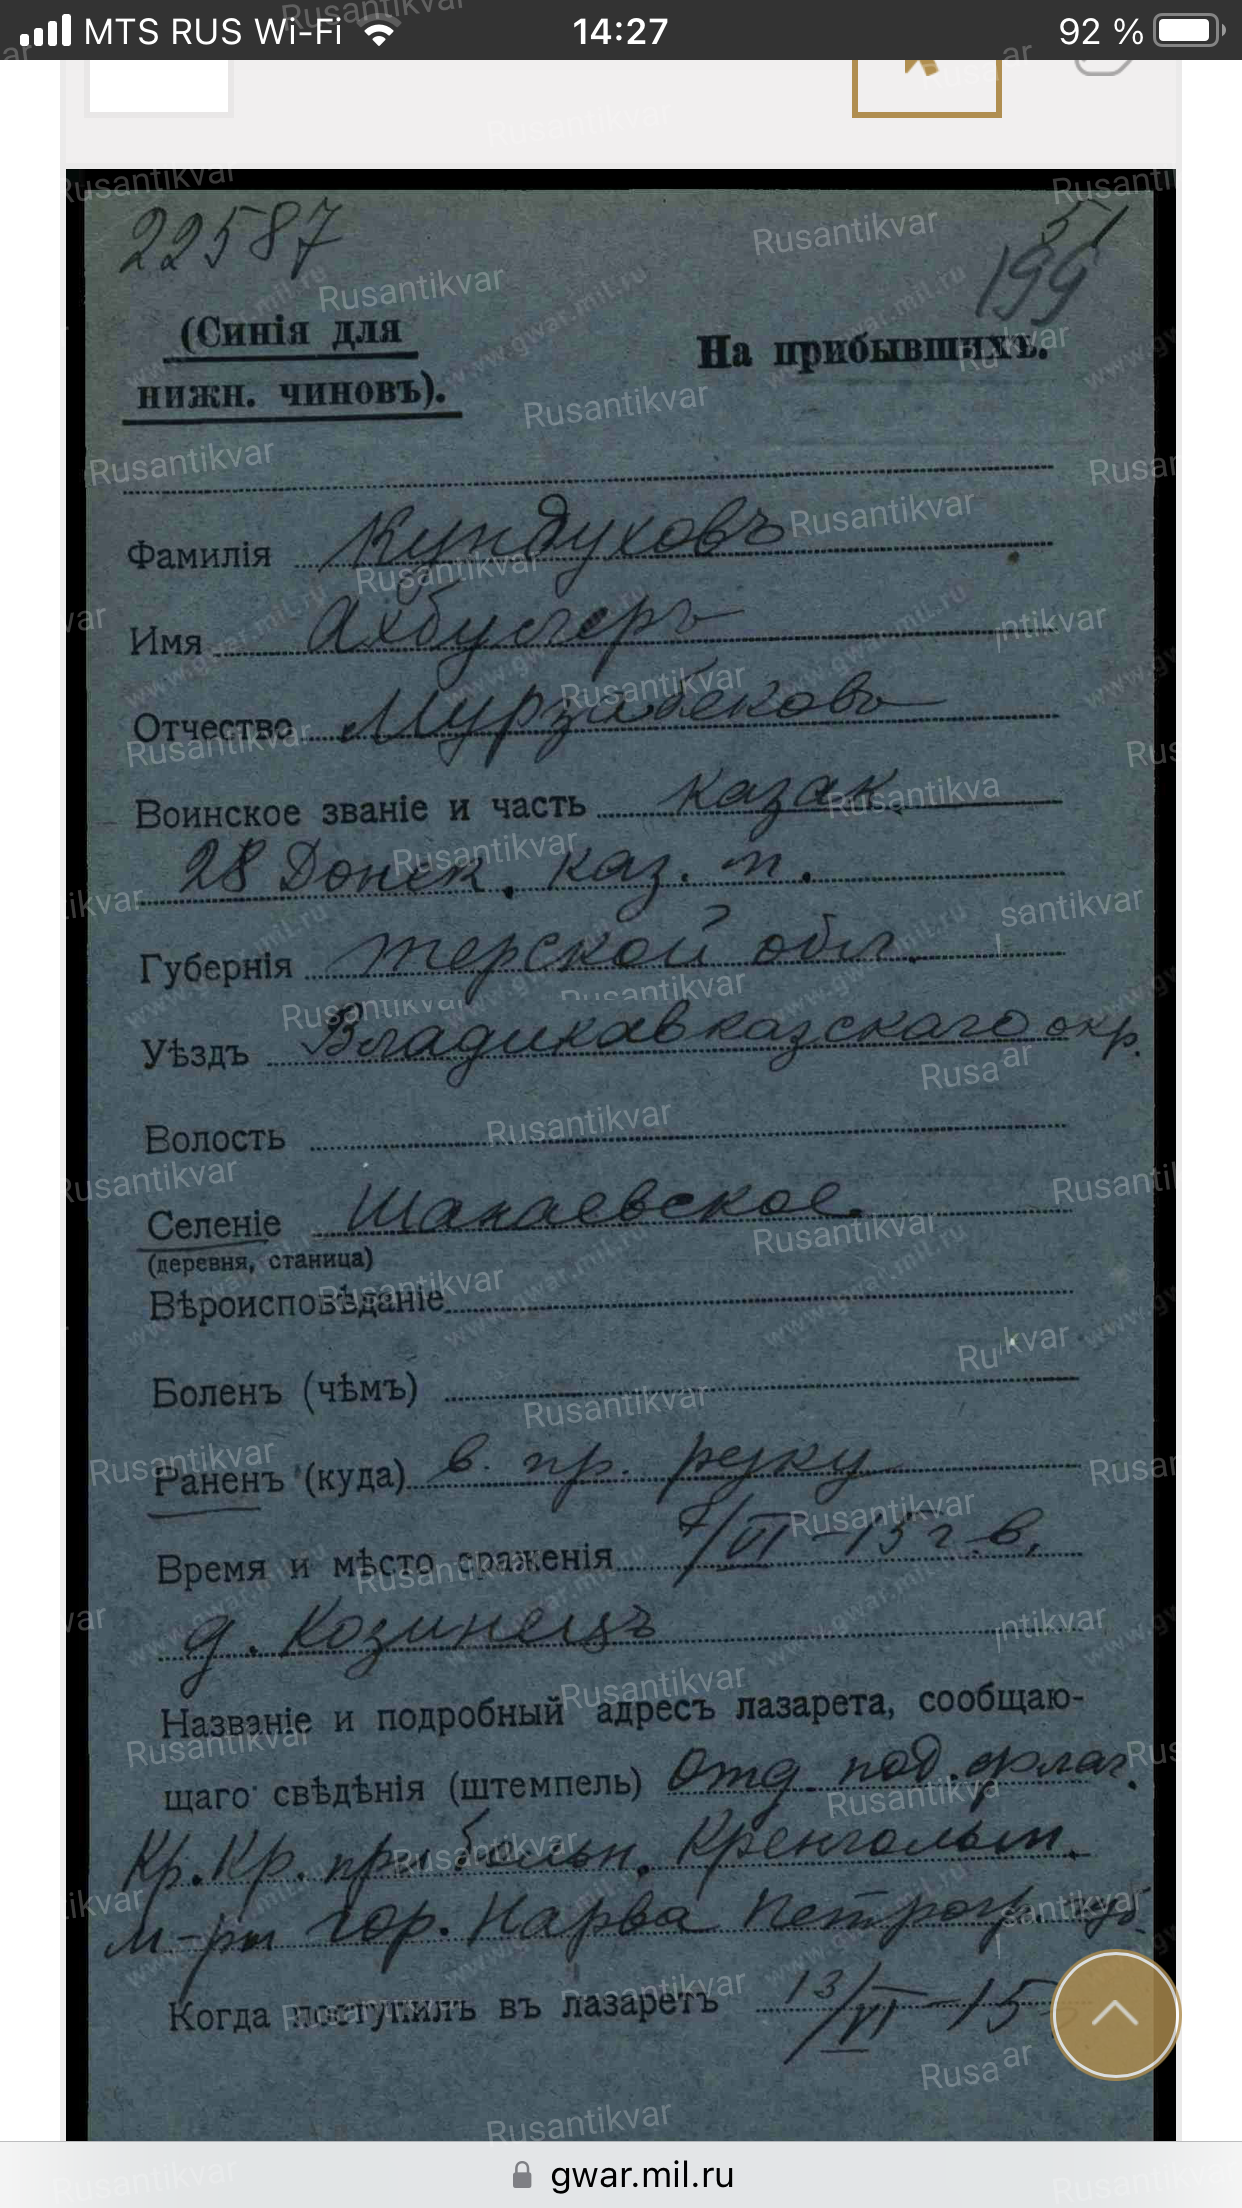 MTS RUS Wi-Fi 14:27 92 %
22587
51
199
(Синія для
нижн. чиновъ).
На прибывшихъ.
Фамилія Кундуховъ
Имя Ахбулеръ
Отчество Мурзабековъ
Воинское званіе и часть казак
28 Донск. каз. п.
Губернія Терской обл.
Уѣздъ Владикавказскаго окр.
Волость
Селеніе Шанаевское.
(деревня, станица)
Вѣроисповѣданіе
Боленъ (чѣмъ)
Раненъ (куда) в. пр. руку
Время и мѣсто сраженія 7/VI-15 г. в.
д. Козинецъ
Названіе и подробный адресъ лазарета, сообщаю-
щаго свѣдѣнія (штемпель) Отд. под. флаг.
Кр. Кр. при больн. Кренгольм.
м-ры гор. Нарва Петрогр. губ.
Когда поступилъ въ лазаретъ 13/VI-15
gwar.mil.ru
Rusantikvar
www.gwar.mil.ru